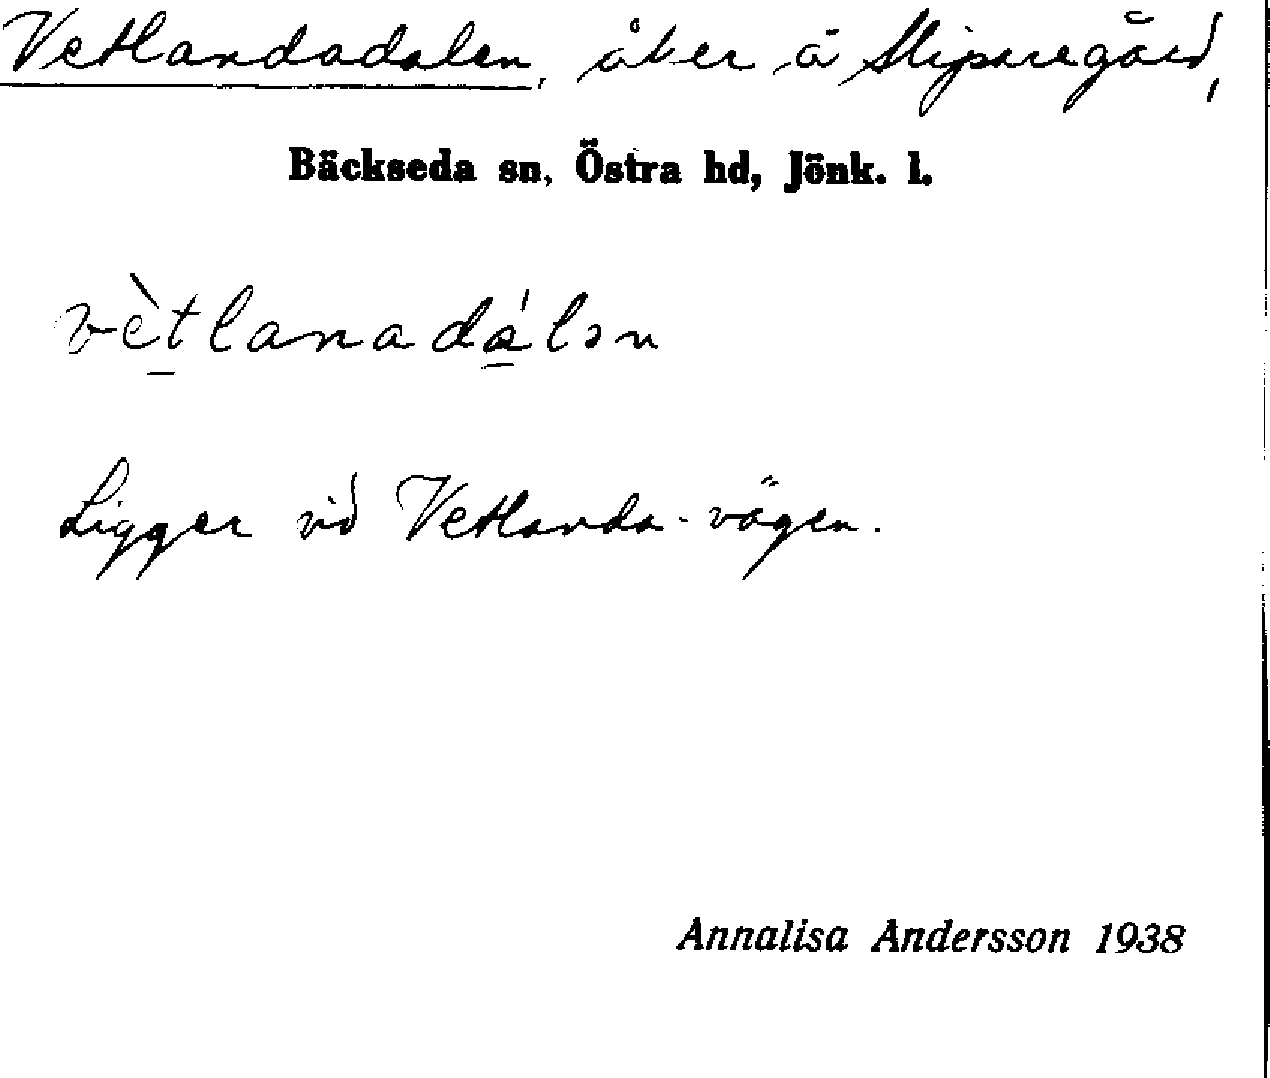 Vetlandadalen, åker å Sliparegård,
Bäckseda sn, Östra hd, Jönk. l.
vètlanadálən
Ligger vid Vetlanda-vägen.
Annalisa Andersson 1938